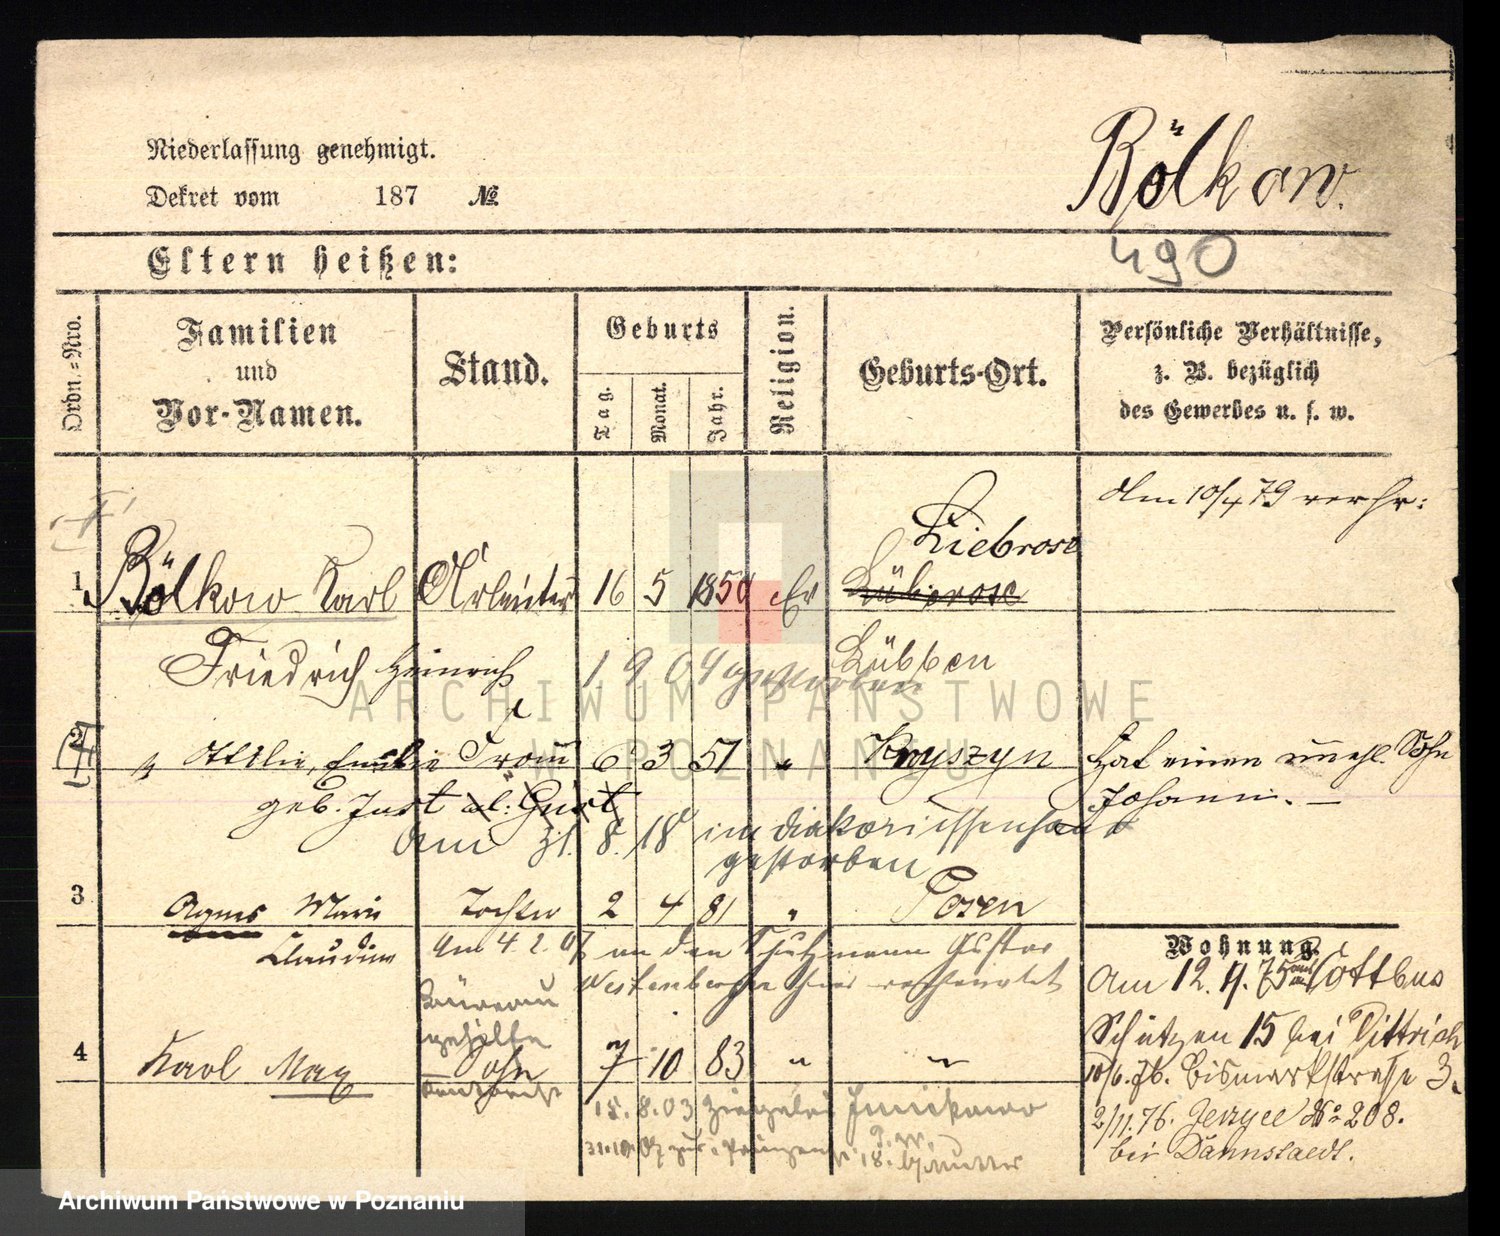 Bölkow.
Niederlassung genehmigt.
Dekret vom 187 №
490
Eltern heißen:
Ordn.-Nro.
Familien und Vor-Namen.
Stand.
Geburts
Tag.
Monat.
Jahr.
Religion.
Geburts-Ort.
Persönliche Verhältnisse,
z. B. bezüglich
des Gewerbes u. s. w.
Am 10/4 79 verh:
Liebrose
1. Bölkow Karl Arbeiter 16 5 1850 Ev Lüberose
Friedrich Heinrich Lübben
1904 gestorben
2 Ottilie, Emilie Frau 6 3 51 " Kryszyn Hat einen unehl. Sohn
geb. Just Johann. —
Am 31. 8. 18 im Diakonissenhaus
gestorben
3 Agnes Marie Tochter 2 4 81 " Posen
Claudine
Am 4. 2. 07 an den Schutzmann Gustav
hier verheiratet
Büreau
gehülfe
4 Karl Max Sohn 7 10 83 " "
15.8.03
31.10.07
18. Mutter
Wohnung
Am 12. 9. 75 aus Cottbus
Schützen 15 bei Dittrich
10/6. 76. Bismarkstrasse 3.
2/11. 76. Jerzyce № 208.
bei Dannstaedt.
ARCHIWUM PAŃSTWOWE
W POZNANIU
Archiwum Państwowe w Poznaniu